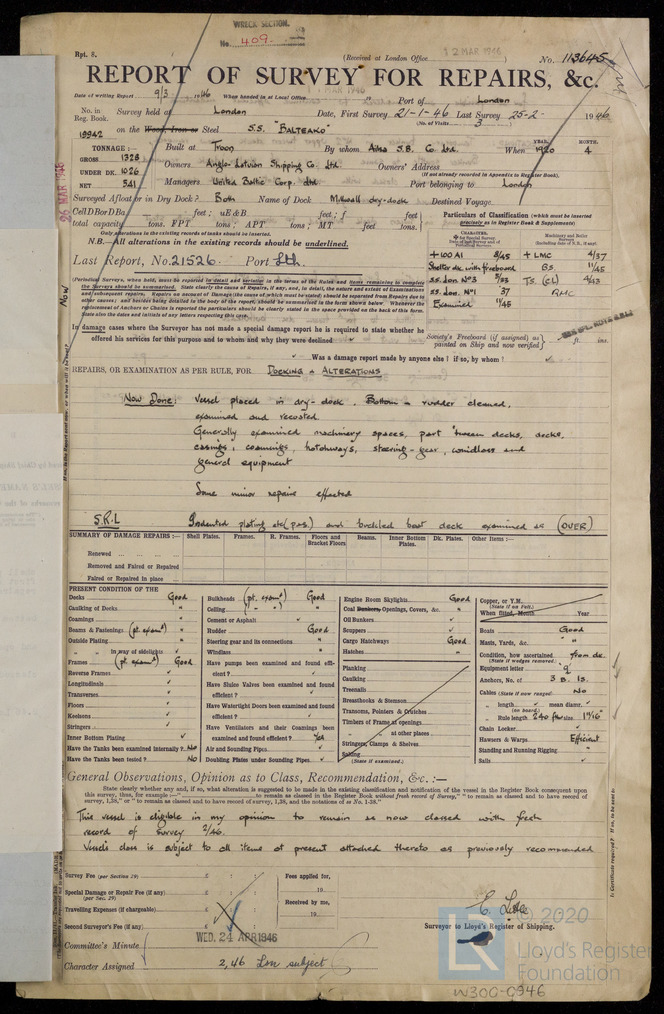 WRECK SECTION.
No. 409.
Rpt. 8.
(Received at London Office 12 MAR 1946)
No. 113645
REPORT OF SURVEY FOR REPAIRS, &c.
Date of writing Report 9/3 1946 When handed in at Local Office MAR 1946 Port of London
No. in Reg. Book. Survey held at London Date, First Survey 21-1-46 Last Survey 25-2- 1946
(No. of Visits 3)
18942 on the Wood, Iron or Steel S.S. "BALTEAKO"
TONNAGE:—
GROSS 1328
UNDER DK. 1026
NET 541
Built at Troon By whom Ailsa S.B. Co. Ltd. When YEAR. 1920 MONTH. 4
Owners Anglo-Latvian Shipping Co. Ltd. Owners' Address
(If not already recorded in Appendix to Register Book.)
Managers United Baltic Corp. Ltd Port belonging to London
26 MAR 1946
Surveyed Afloat or in Dry Dock? Both Name of Dock Millwall dry-dock Destined Voyage
Cell D Bor D Ba feet; uE&B feet; f feet
total capacity tons. FPT tons; APT tons; MT feet tons.
Only alterations in the existing records of tanks should be inserted.
N.B.—All alterations in the existing records should be underlined.
Last Report, No. 21526. Port Lth.
Particulars of Classification (which must be inserted precisely as in Register Book & Supplements)
CHARACTER.
+100 A1 8/45 + LMC 4/37
Shelter dk. with freeboard BS. 11/45
ss. Lon. No 3 5/33 TS. (CL) 4/43
ss. Lon. No 1 37 RMC
Examined 11/45
(Periodical Surveys, when held, must be reported in detail and seriatim in the terms of the Rules and items remaining to complete the Surveys should be summarised.
In damage cases where the Surveyor has not made a special damage report he is required to state whether he
offered his services for this purpose and to whom and why they were declined
Society's Freeboard (if assigned) as painted on Ship and now verified ft. ins.
Was a damage report made by anyone else? if so, by whom?
REPAIRS, OR EXAMINATION AS PER RULE, FOR DOCKING & ALTERATIONS
Now Done: Vessel placed in dry-dock. Bottom & rudder cleaned,
examined and recoated.
Generally examined machinery spaces, part 'tween decks, decks,
casings, coamings, hatchways, steering-gear, windlass and
general equipment
Some minor repairs effected
S.R.L Indented plating etc (p&s.) and buckled boat deck examined as (OVER)
SUMMARY OF DAMAGE REPAIRS:— Shell Plates. Frames. R. Frames. Floors and Bracket Floors Beams. Inner Bottom Plates. Dk. Plates. Other Items:—
Renewed
Removed and Faired or Repaired
Faired or Repaired in place
PRESENT CONDITION OF THE
Decks Good
Caulking of Decks "
Coamings "
Beams & Fastenings (pt. examd) "
Outside Plating "
" " In way of sidelights
Frames (pt. examd) Good
Reverse Frames
Longitudinals
Transverses
Floors
Keelsons
Stringers
Inner Bottom Plating
Have the Tanks been examined internally? No
Have the Tanks been tested? No
Bulkheads (pt. examd) Good
Ceiling ( " " ) "
Cement or Asphalt
Rudder Good
Steering gear and its connections "
Windlass "
Have pumps been examined and found efficient?
Have Sluice Valves been examined and found efficient?
Have Watertight Doors been examined and found efficient?
Have Ventilators and their Coamings been examined and found efficient? Yes
Air and Sounding Pipes
Doubling Plates under Sounding Pipes
Engine Room Skylights Good
Coal Bunkers, Openings, Covers, &c. "
Oil Bunkers
Scuppers
Cargo Hatchways Good
Hatches "
Planking
Caulking
Treenails
Breasthooks & Stemson
Transoms, Pointers & Crutches
Timbers of Frame at openings
" " at other places
Stringers, Clamps & Shelves
Salting
(State if examined.)
Copper, or Y.M.
(State if on Felt.)
When fitted, Month Year
Boats Good
Masts, Yards, &c. "
Condition, how ascertained from dk.
(State if wedges removed.)
Equipment letter q
Anchors, No. of 3 B. 1S.
Cables (State if now ranged) No
" length mean diamr.
(on board.)
" Rule length 240 fms size 1 11/16"
Chain Locker
Hawsers & Warps Efficient
Standing and Running Rigging "
Sails
General Observations, Opinion as to Class, Recommendation, &c.:—
State clearly whether any and, if so, what alteration is suggested to be made in the existing classification and notification of the vessel in the Register Book consequent upon
This vessel is eligible in my opinion to remain as now classed with fresh
record of survey 2/46.
Vessels class is subject to all items at present attached thereto as previously recommended
Survey Fee (per Section 29) £ : :
Special Damage or Repair Fee (if any) (per Sec. 29) £ : :
Travelling Expenses (if chargeable) £ : :
Second Surveyor's Fee (if any) £ : :
Fees applied for, 19
Received by me, 19
Surveyor to Lloyd's Register of Shipping.
Committee's Minute WED. 24 APR 1946
Character Assigned 2,46 Lon subject
LR © 2020
Lloyd's Register
Foundation
W300-0946